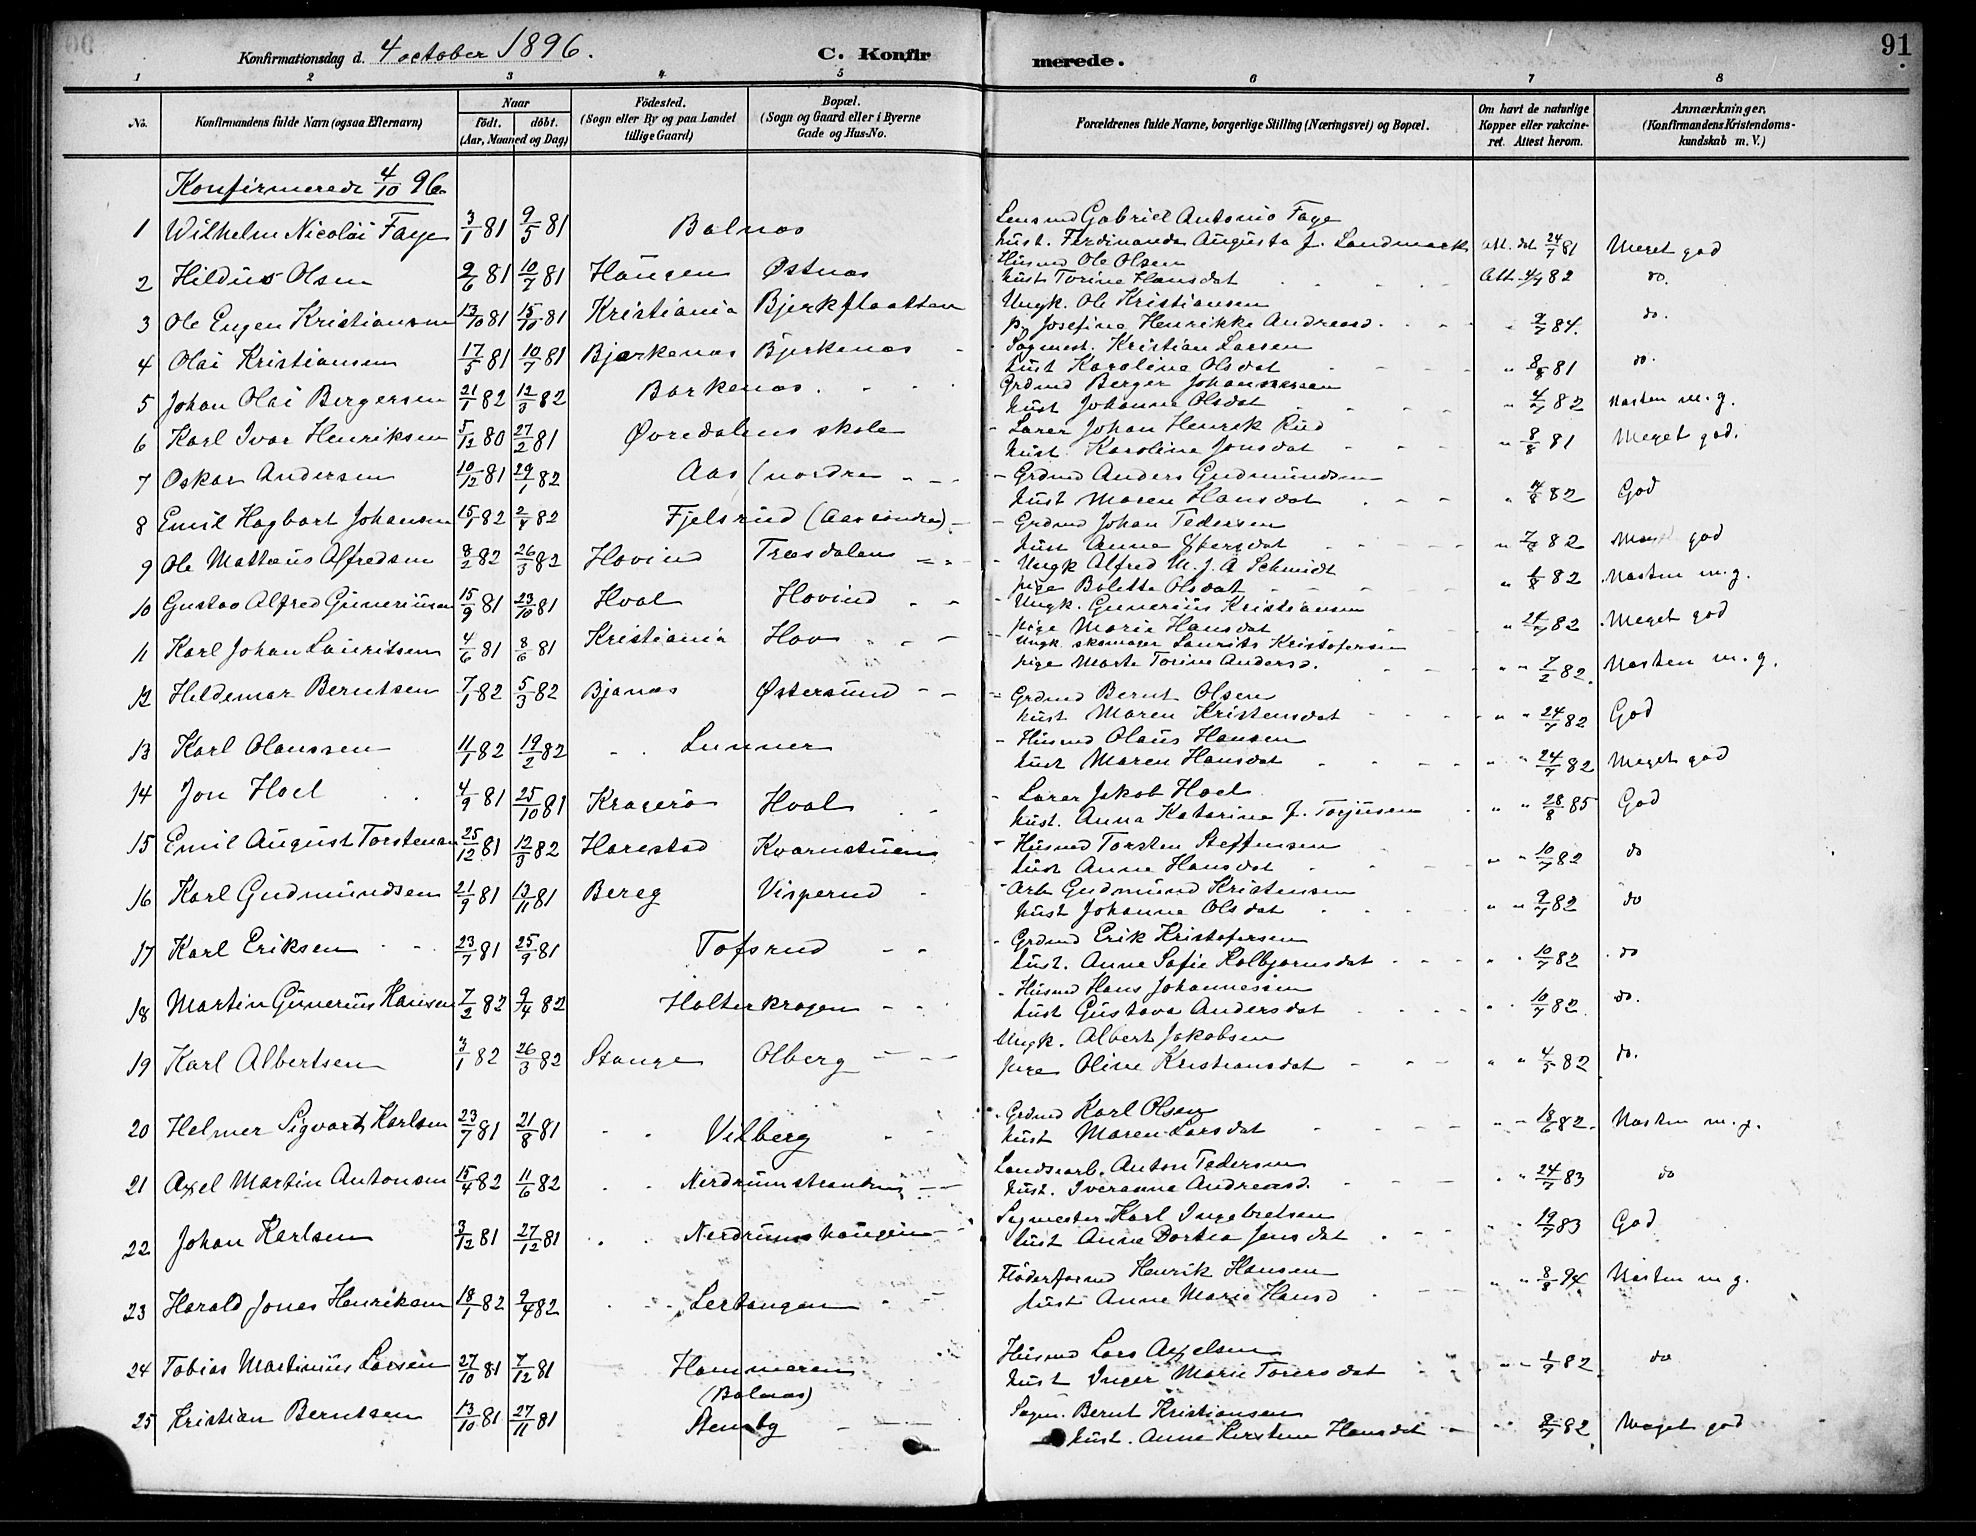 Konfirmationsdag d. 4 october 1896. C. Konfirmerede. 91
1 2 3 4 5 6 7 8
No. Konfirmandens fulde Navn (ogsaa Efternavn) Naar födt. döbt. (Aar, Maaned og Dag) Födested. (Sogn eller By og paa Landet tillige Gaard) Bopæl. (Sogn og Gaard eller i Byerne Gade og Hus-No. Forældrenes fulde Navne, borgerlige Stilling (Næringsvei) og Bopæl. Om havt de naturlige Kopper eller vakcineret. Attest herom. Anmærkninger. (Konfirmandens Kristendomskundskab m. V.)
Konfirmerede 4/10 96.
1 Wilhelm Nicolai Faye 3/1 81 9/5 81 Balnæs Lensmd Gabriel Antonio Faye
hust. Ferdinanda Augusta f. Landmark att. dat 24/7 81 Meget god
2 Hildus Olsen 2/6 81 10/7 81 Haugen Østnæs Husmd Ole Olsen
hust Torine Hansdat Att. 4/7 82 do.
3 Ole Eugen Kristiansen 13/10 81 15/10 81 Kristiania Bjerkflaatten Ungk. Ole Kristiansen
p. Josefine Henrikke Andreasd. " 9/7 84. do.
4 Olai Kristiansen 17/5 81 10/7 81 Bjærkenæs Bjerkenæs Sagmest. Kristian Larsen
hust Karoline Olsdat " 8/8 81 do.
5 Johan Olai Bergersen 21/1 82 12/3 82 Barkenæs Grdmd Berger Johannessen
hust Johanne Olsdat " 4/7 82 Næsten m. g.
6 Karl Ivar Henriksen 5/12 80 27/2 81 Øvredalens skole Lærer Johan Henrik Rud
hust. Karoline Jonsdat " 8/8 81 Meget god.
7 Oskar Andersen 10/12 81 29/1 82 Aas (nordre Grdmd Anders Gudmundsen
hust Maren Hansdat " 14/8 82 God
8 Emil Hagbart Johansen 15/1 82 2/4 82 Fjelsrud (Aas søndre) Grdmd Johan Pedersen
hust Anne Ekersdat " 7/8 82 god
9 Ole Mathæus Alfredsen 8/2 82 26/3 82 Hovind Træsdalen Ungk Alfred M. J. A Schmidt
pige Bolette Olsdat " 1/8 82 Næsten m. g.
10 Gustav Alfred Guneriusen 15/9 81 23/10 81 Hval Hovind Ungk. Gunerius Kristiansen
pige Marie Hansdat " 24/7 82 Meget god
11 Karl Johan Lauritsen 4/6 81 8/6 81 Kristiania Hov Ungk skomager Laurits Kristofersen
pige Marte Torine Andersd. " " 7/2 82. Næsten m. g.
12 Hildemar Berntsen 7/1 82 5/3 82 Bjanæs Østersund Grdmd Bernt Olsen
hust Maren Kristensdat " " 24/7 82 God
13 Karl Olaussen 11/1 82 19/2 82 Lunner Husmd Olaus Hansen
hust Maren Hansdat " " 24/7 82 Meget god
14 Jon Hoel 4/9 81 25/10 81 Kragerø Hval Lærer Jakob Hoel
hust. Anna Katarina f. Torjusen " " 28/8 85 God
15 Emil August Torstensen 25/12 81 12/3 82 Harestad Kvernstuen Husmd Torsten Steffensen
hust Anne Hansdat " " 10/7 82 do
16 Karl Gudmundsen 21/9 81 13/11 81 Bereg Visperud Arb Gudmund Kristensen
hust Johanne Olsdat " " 2/7 82 do
17 Karl Eriksen 23/7 81 25/9 81 Tofsrud Grdmd Erik Kristofersen
hust. Anne Sofie Kolbjørnsdat " " 10/7 82 do
18 Martin Gunerius Hansen 7/2 82 9/4 82 Holterkragen Husmd Hans Johannessen
hust Gustava Andersdat " " 10/7 82 do.
19 Karl Albertsen 3/1 82 26/3 82 Stange Olberg Ungk. Albert Jakobsen
pige Oline Kristiansdat " " 4/5 82 do.
20 Helmer Sigvart Karlsen 23/7 81 21/8 81 Vilberg Grdmd Karl Olsen
hust Maren Larsdat " " 18/6 82. Næsten m. g.
21 Axel Martin Antonsen 15/4 82 11/6 82 Nerdrumstranden Landsarb. Anton Pedersen
hust. Iveranna Andreasd. " " 24/7 83 do
22 Johan Karlsen 3/12 81 27/12 81 Nerdrumshaugen Sagmester Karl Ingebretsen
hust Anne Dortea Jensdat " " 19/7 83 God
23 Harald Jonas Henriksen 18/1 82 9/4 82 Lertangen Fløderformd Henrik Hansen
hust Anne Marie Hansd " " 8/8 94 Næsten m g.
24 Tobias Martinius Larsen 27/10 81 7/12 81 Hammeren Husmd Lars Axelsen
(Balnæs) hust Inger Marie Torersdat " " 1/7 82 do
25 Kristian Berntsen 13/10 81 27/11 81 Stensby Sagm. Bernt Kristiansen
hust. Anne Kerstine Hansdat " " 8/7 82 Meget god